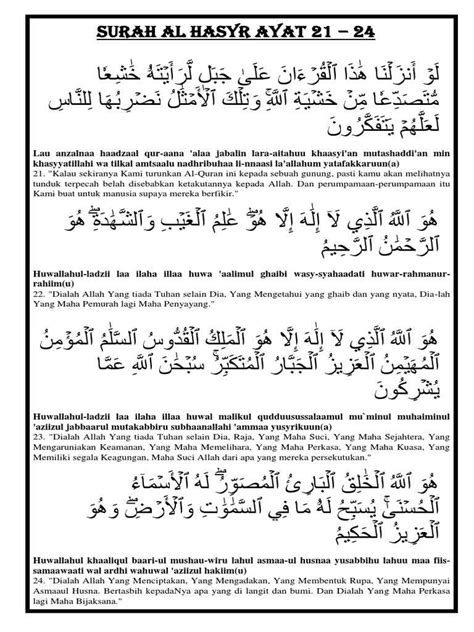 SURAH AL HASYR AYAT 21 – 24
لَوْ أَنزَلْنَا هَٰذَا ٱلْقُرْءَانَ عَلَىٰ جَبَلٍ لَّرَأَيْتَهُۥ خَٰشِعًا
مُّتَصَدِّعًا مِّنْ خَشْيَةِ ٱللَّهِ ۚ وَتِلْكَ ٱلْأَمْثَٰلُ نَضْرِبُهَا لِلنَّاسِ
لَعَلَّهُمْ يَتَفَكَّرُونَ
Lau anzalnaa haadzaal qur-aana 'alaa jabalin lara-aitahuu khaasyi'an mutashaddi'an min
khasyyatillahi wa tilkal amtsaalu nadhribuhaa li-nnaasi la'allahum yatafakkaruun(a)
21. "Kalau sekiranya Kami turunkan Al-Quran ini kepada sebuah gunung, pasti kamu akan melihatnya
tunduk terpecah belah disebabkan ketakutannya kepada Allah. Dan perumpamaan-perumpamaan itu
Kami buat untuk manusia supaya mereka berfikir."
هُوَ ٱللَّهُ ٱلَّذِي لَآ إِلَٰهَ إِلَّا هُوَ ۖ عَٰلِمُ ٱلْغَيْبِ وَٱلشَّهَٰدَةِ ۖ هُوَ
ٱلرَّحْمَٰنُ ٱلرَّحِيمُ
Huwallahul-ladzii laa ilaha illaa huwa 'aalimul ghaibi wasy-syahaadati huwar-rahmanur-
rahiim(u)
22. "Dialah Allah Yang tiada Tuhan selain Dia, Yang Mengetahui yang ghaib dan yang nyata, Dia-lah
Yang Maha Pemurah lagi Maha Penyayang."
هُوَ ٱللَّهُ ٱلَّذِي لَآ إِلَٰهَ إِلَّا هُوَ ٱلْمَلِكُ ٱلْقُدُّوسُ ٱلسَّلَٰمُ ٱلْمُؤْمِنُ
ٱلْمُهَيْمِنُ ٱلْعَزِيزُ ٱلْجَبَّارُ ٱلْمُتَكَبِّرُ ۚ سُبْحَٰنَ ٱللَّهِ عَمَّا
يُشْرِكُونَ
Huwallahul-ladzii laa ilaha illaa huwal malikul qudduusussalaamul mu`minul muhaiminul
'aziizul jabbaarul mutakabbiru subhaanallahi 'ammaa yusyrikuun(a)
23. "Dialah Allah Yang tiada Tuhan selain Dia, Raja, Yang Maha Suci, Yang Maha Sejahtera, Yang
Mengaruniakan Keamanan, Yang Maha Memelihara, Yang Maha Perkasa, Yang Maha Kuasa, Yang
Memiliki segala Keagungan, Maha Suci Allah dari apa yang mereka persekutukan."
هُوَ ٱللَّهُ ٱلْخَٰلِقُ ٱلْبَارِئُ ٱلْمُصَوِّرُ ۖ لَهُ ٱلْأَسْمَآءُ
ٱلْحُسْنَىٰ ۚ يُسَبِّحُ لَهُۥ مَا فِي ٱلسَّمَٰوَٰتِ وَٱلْأَرْضِ ۖ وَهُوَ
ٱلْعَزِيزُ ٱلْحَكِيمُ
Huwallahul khaaliqul baari-ul mushau-wiru lahul asmaa-ul husnaa yusabbihu lahuu maa fiis-
samaawaati wal ardhi wahuwal 'aziizul hakiim(u)
24. "Dialah Allah Yang Menciptakan, Yang Mengadakan, Yang Membentuk Rupa, Yang Mempunyai
Asmaaul Husna. Bertasbih kepadaNya apa yang di langit dan bumi. Dan Dialah Yang Maha Perkasa
lagi Maha Bijaksana."